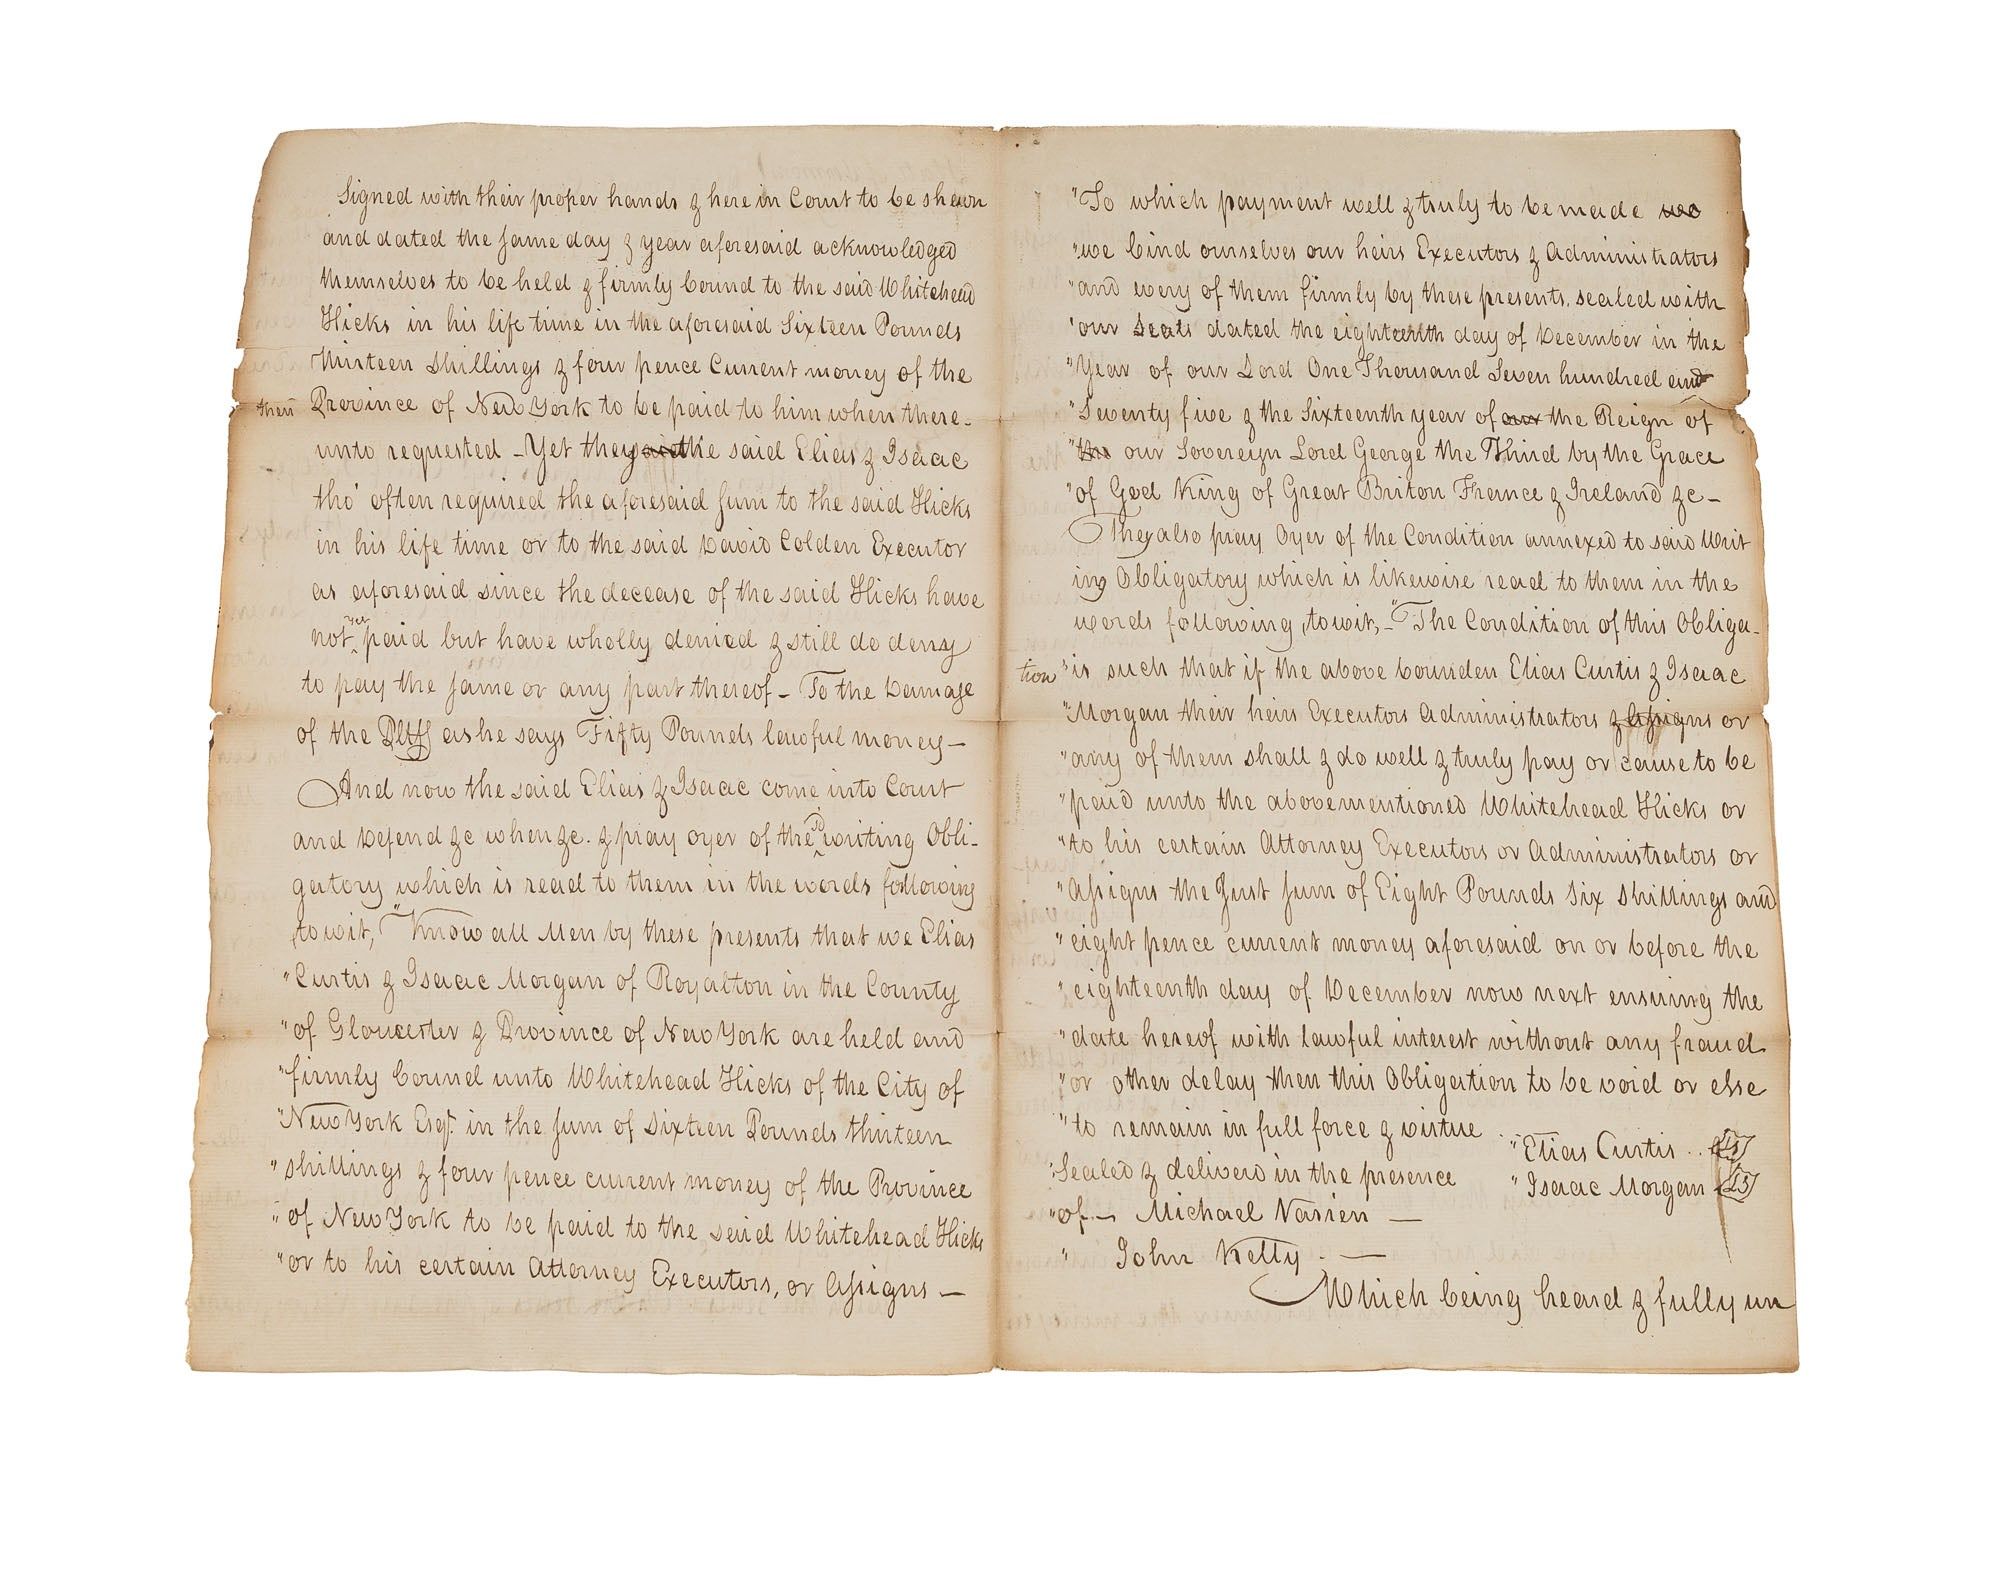 Signed with their proper hands & here in Court to be shewn
and dated the same day & year aforesaid acknowledged
themselves to be held & firmly bound to the said Whitehead
Hicks in his life time in the aforesaid Sixteen Pounds
Thirteen Shillings & four pence Current money of the
then Province of New York to be paid to him when there-
unto requested - Yet they the said Elias & Isaac
tho' often required the aforesaid sum to the said Hicks
in his life time or to the said David Colden Executor
as aforesaid since the decease of the said Hicks have
not yet paid but have wholly denied & still do deny
to pay the same or any part thereof - To the Damage
of the Pltff as he says Fifty Pounds lawful money -
And now the said Elias & Isaac come into Court
and Defend &c when &c. & pray oyer of the sd writing Obli-
gatory which is read to them in the words following
towit, "Know all Men by these presents that we Elias
"Curtis & Isaac Morgan of Royalton in the County
"of Gloucester & Province of New York are held and
"firmly bound unto Whitehead Hicks of the City of
"New York Esqr. in the sum of Sixteen Pounds thirteen
"shillings & four pence current money of the Province
"of New York to be paid to the said Whitehead Hicks
"or to his certain Attorney Executors, or Assigns -
"To which payment well & truly to be made we
"we bind ourselves our heirs Executors & Administrators
"and every of them firmly by these presents, sealed with
"our Seals dated the eighteenth day of December in the
"Year of our Lord One Thousand Seven hundred and
"Seventy five & the Sixteenth year of our the Reign of
"the our Sovereign Lord George the Third by the Grace
"of God King of Great Briton France & Ireland &c -
They also pray Oyer of the Condition annexed to said Writ
ing Obligatory which is likewise read to them in the
words following, towit, - "The Condition of this Obliga-
tion "is such that if the above bounden Elias Curtis & Isaac
"Morgan their heirs Executors Administrators & Assigns or
"any of them shall & do well & truly pay or cause to be
"paid unto the abovementioned Whitehead Hicks or
"to his certain Attorney Executors or Administrators or
"Assigns the Just sum of Eight Pounds six shillings and
"eight pence current money aforesaid on or before the
"eighteenth day of December now next ensuing the
"date hereof with lawful interest without any fraud
"or other delay then this Obligation to be void or else
"to remain in full force & virtue
"Elias Curtis .. LS
"Sealed & deliverd in the presence
"Isaac Morgan LS
"of - Michael Varien -
" John Kelly . -
Which being heard & fully un